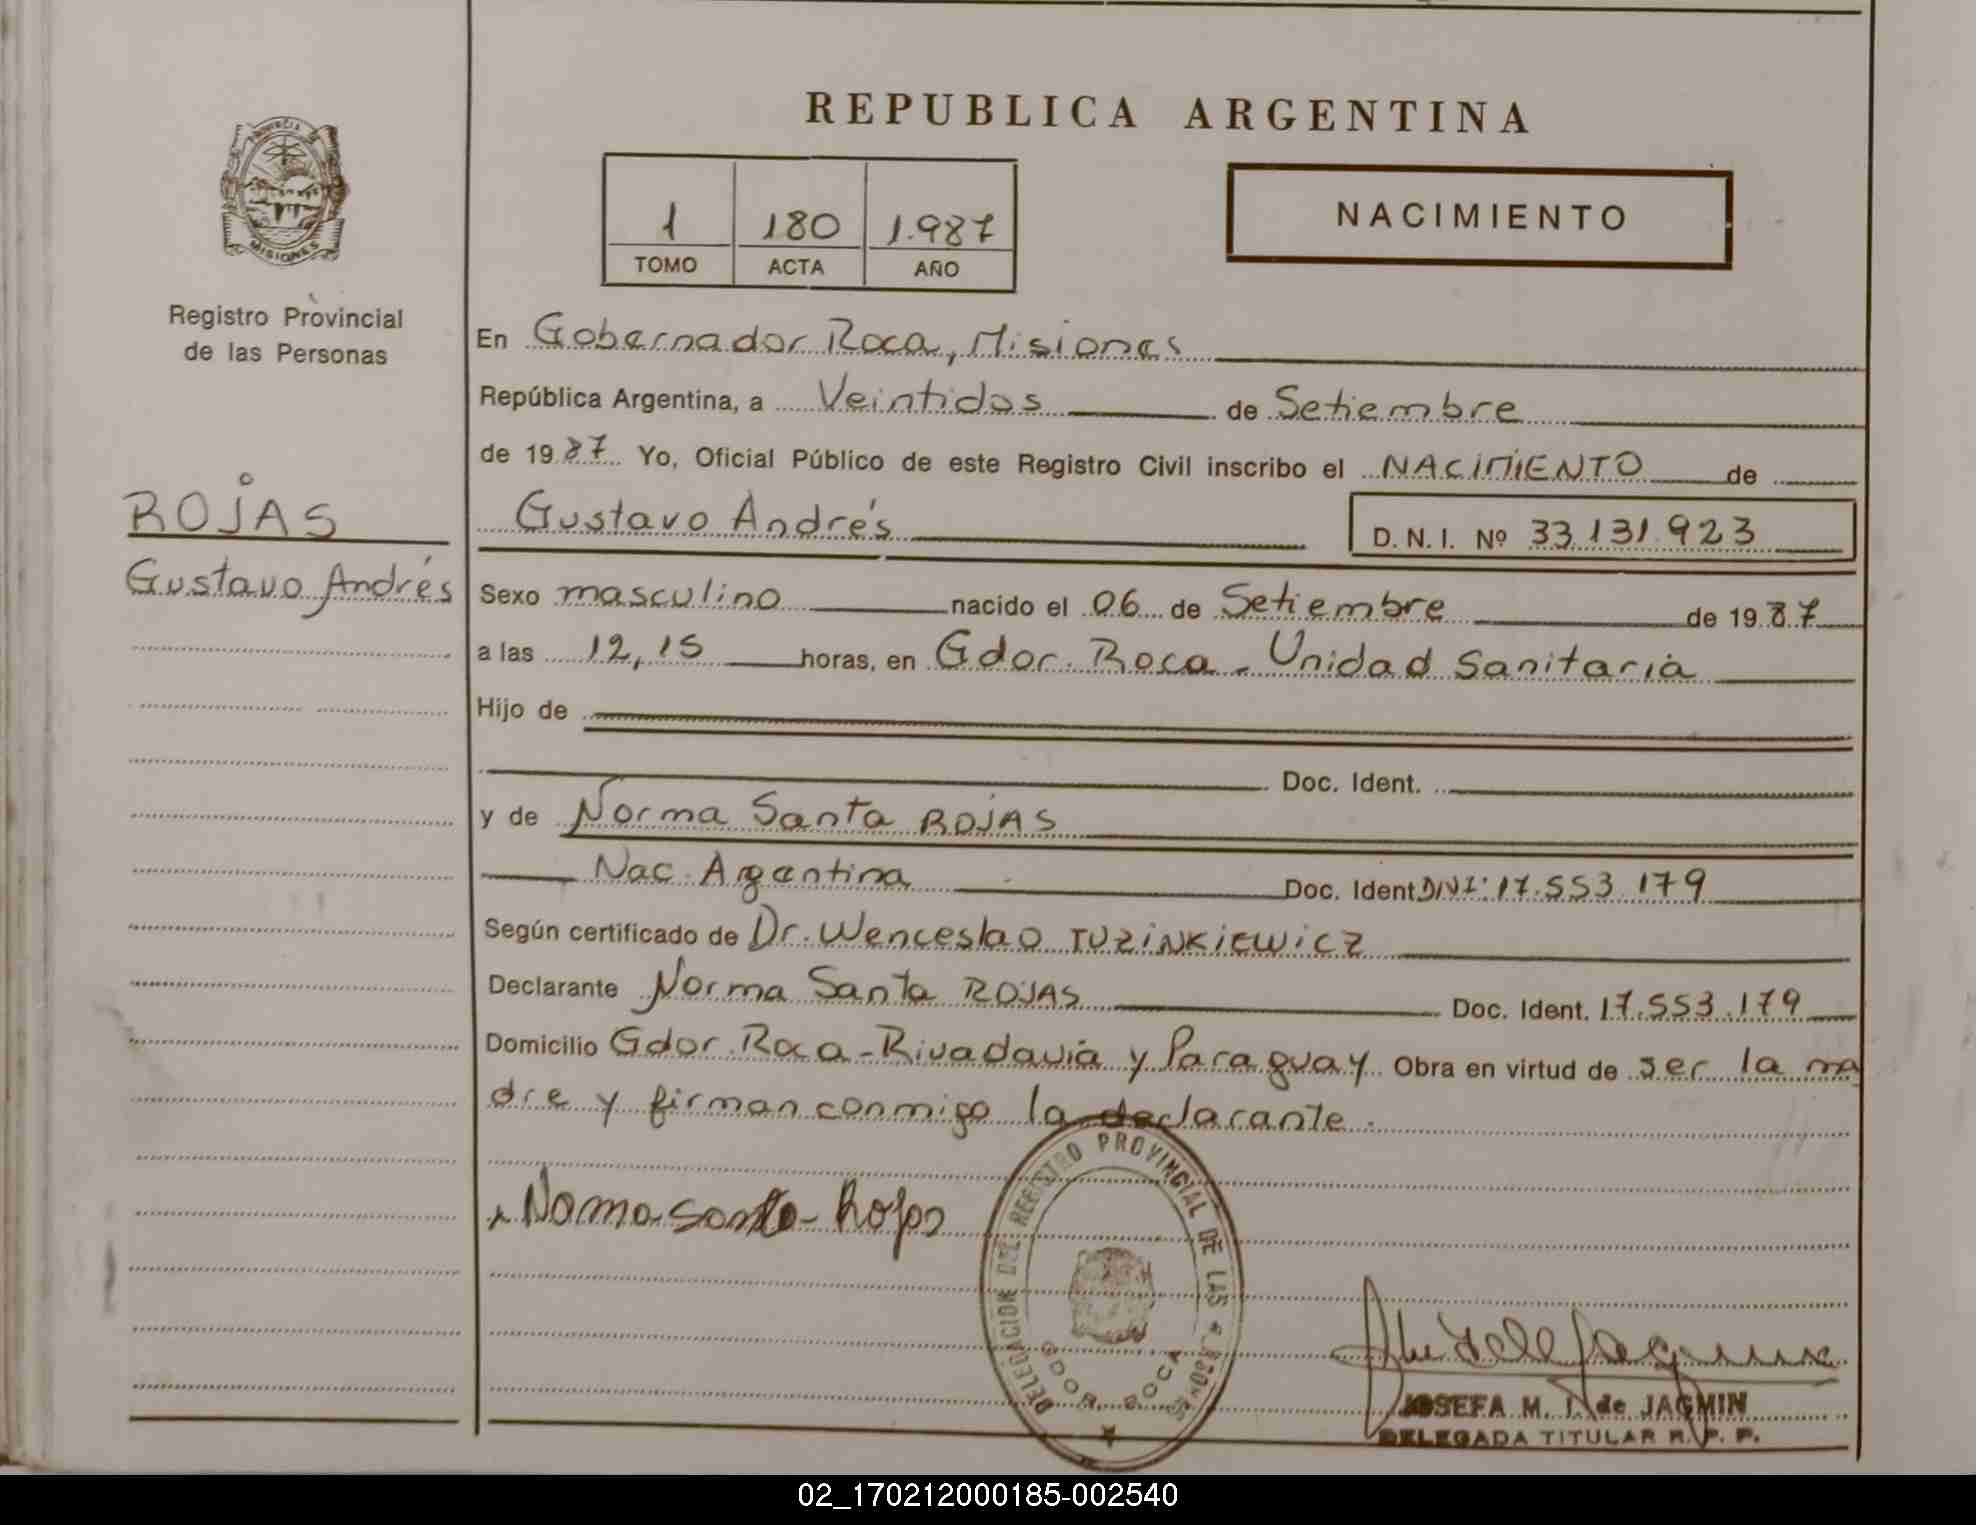 PROVINCIA DE
MISIONES
Registro Provincial
de las Personas
ROJAS
Gustavo Andrés
REPUBLICA ARGENTINA
1 180 1.987
TOMO ACTA AÑO
NACIMIENTO
En Gobernador Roca, Misiones
República Argentina, a Veintidos de Setiembre
de 1987 Yo, Oficial Público de este Registro Civil inscribo el NACIMIENTO de
Gustavo Andrés D.N.I. Nº 33.131.923
Sexo masculino nacido el 06 de Setiembre de 1987
a las 12,15 horas, en Gdor. Roca - Unidad Sanitaria
Hijo de
Doc. Ident.
y de Norma Santa ROJAS
Nac. Argentina Doc. Ident DNI: 17.553.179
Según certificado de Dr. Wenceslao TUZINKIEWICZ
Declarante Norma Santa ROJAS Doc. Ident. 17.553.179
Domicilio Gdor. Roca - Rivadavia y Paraguay Obra en virtud de ser la ma
dre y firman conmigo la declarante.
Norma Santa Rojas
DELEGACION DEL REGISTRO PROVINCIAL DE LAS PERSONAS
GOB. ROCA
JOSEFA M. T. de JAGMIN
DELEGADA TITULAR R. P. P.
02_170212000185-002540